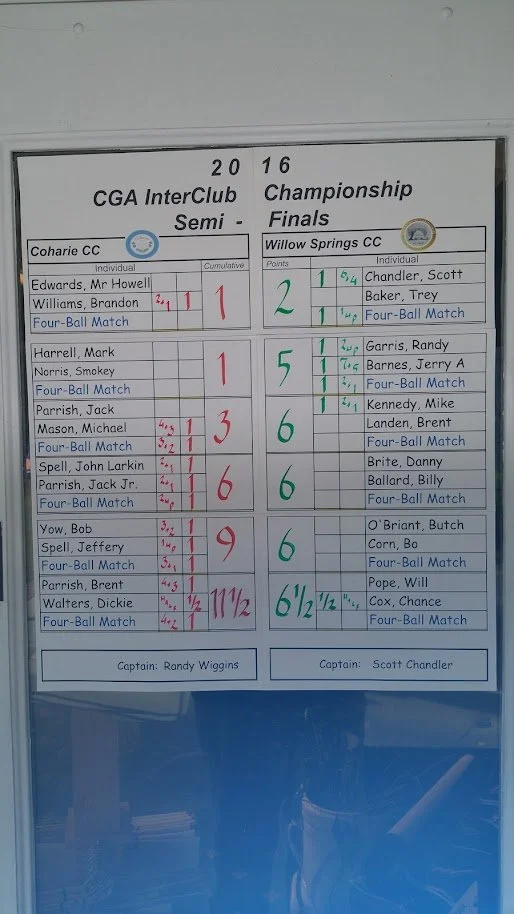 2016
CGA InterClub Championship
Semi - Finals
Coharie CC
Willow Springs CC
Individual Cumulative
Points Individual
Edwards, Mr Howell
Williams, Brandon 2+1 1
Four-Ball Match
1
2
1 6+4 Chandler, Scott
Baker, Trey
1 1up Four-Ball Match
Harrell, Mark
Norris, Smokey
Four-Ball Match
1
5
1 2up Garris, Randy
1 7+6 Barnes, Jerry A
1 2+1 Four-Ball Match
Parrish, Jack
Mason, Michael 4+3 1
Four-Ball Match 3+2 1
3
6
1 2+1 Kennedy, Mike
Landen, Brent
Four-Ball Match
Spell, John Larkin 2+1 1
Parrish, Jack Jr. 2+1 1
Four-Ball Match 2up 1
6
6
Brite, Danny
Ballard, Billy
Four-Ball Match
Yow, Bob 3+2 1
Spell, Jeffery 1up 1
Four-Ball Match 3+1 1
9
6
O'Briant, Butch
Corn, Bo
Four-Ball Match
Parrish, Brent 4+3 1
Walters, Dickie 1/2
Four-Ball Match 4+2 1
11 1/2
6 1/2
Pope, Will
1/2 Cox, Chance
Four-Ball Match
Captain: Randy Wiggins
Captain: Scott Chandler